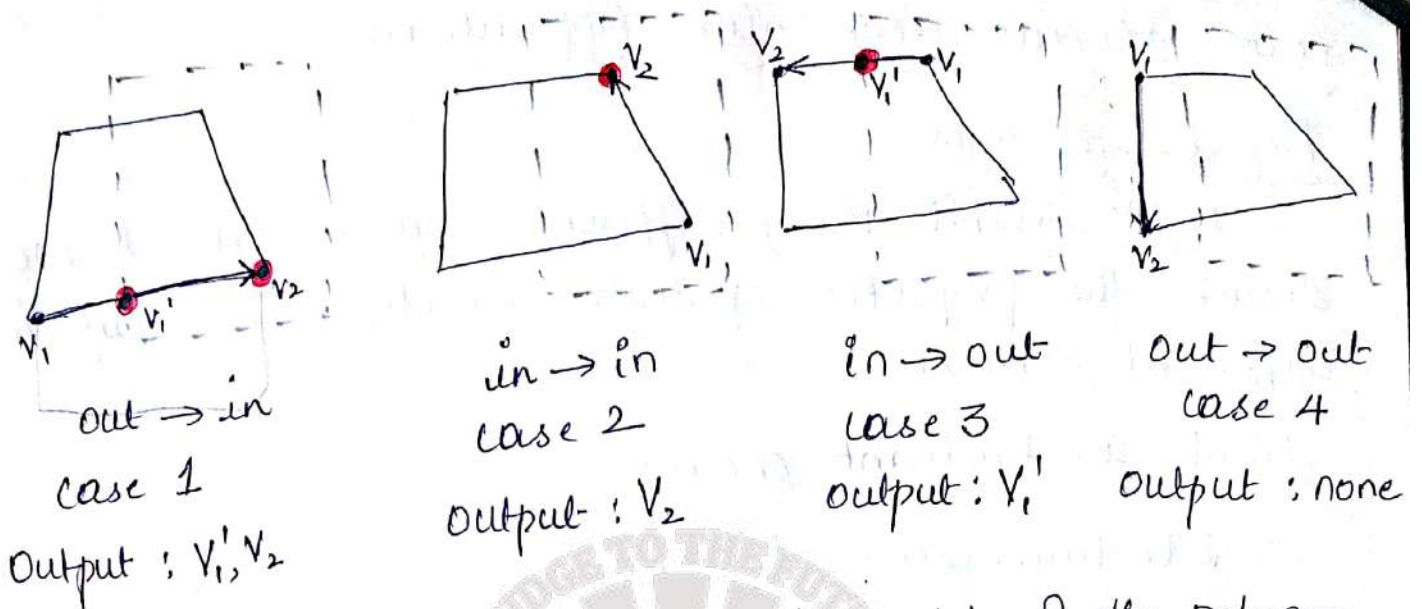 V₁
V₁'
V₂
out → in
case 1
Output : V₁', V₂
V₂
V₁
in → in
case 2
Output : V₂
V₂
V₁'
V₁
in → out
case 3
Output : V₁'
V₁
V₂
out → out
case 4
Output : none
TO THE